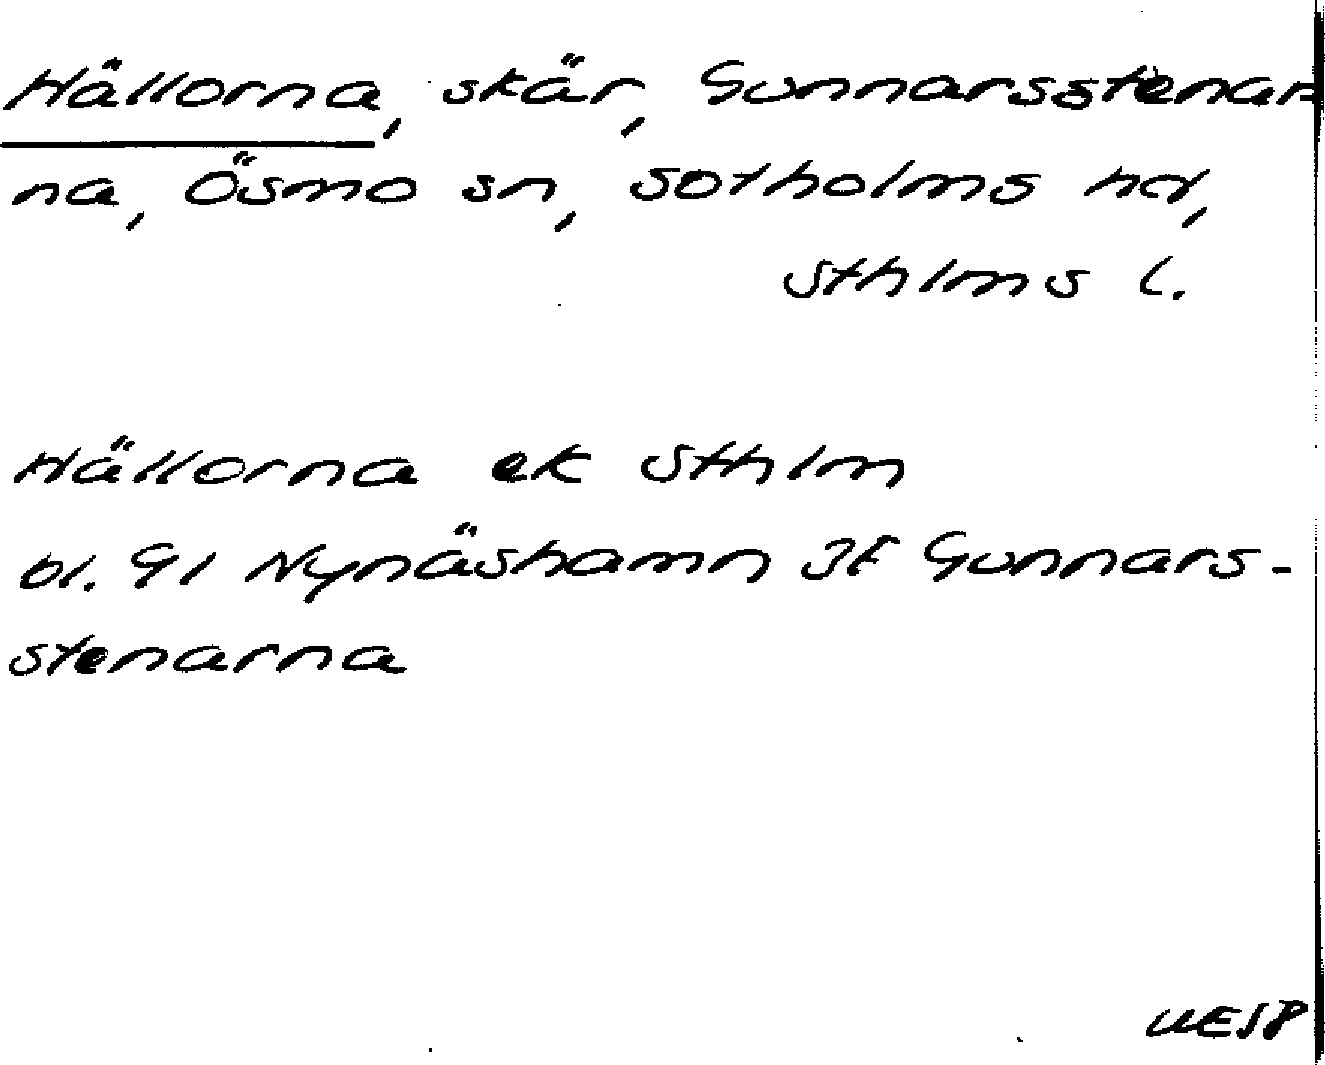 Hällorna, skär, Gunnarsstenar-
na, Ösmo sn, Sotholms hd,
Sthlms l.
Hällorna ek Sthlm
bl. 91 Nynäshamn Gunnars-
stenarna